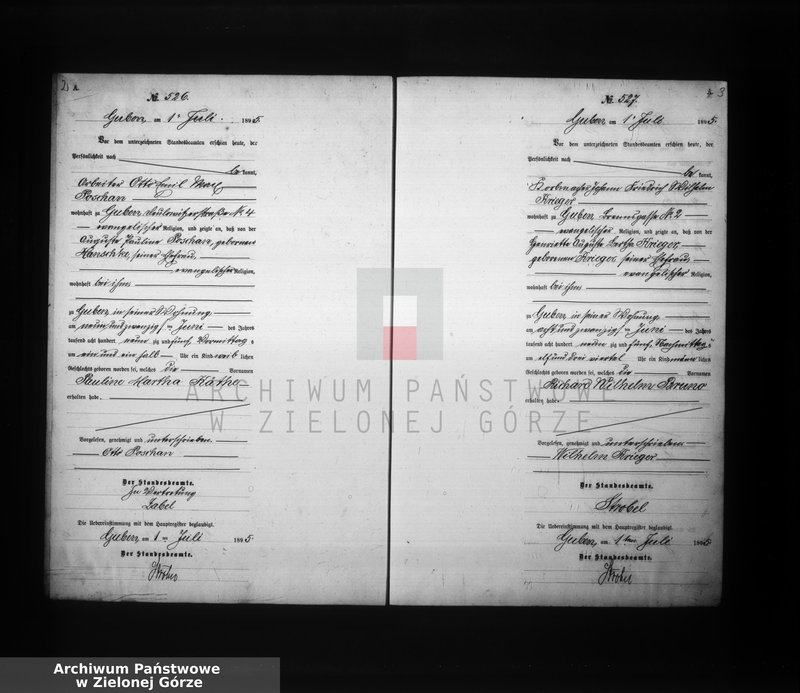 № 526.
Guben am 1ten Juli 1895.
Vor dem unterzeichneten Standesbeamten erschien heute, der
Persönlichkeit nach
be kannt,
Arbeiter Otto Emil Max
Poschan
wohnhaft zu Guben, № 4
evangelischer Religion, und zeigte an, daß von der
Auguste Pauline Poschan, geborenen
Hanschke, seiner Ehefrau,
evangelischer Religion,
wohnhaft bei ihm
zu Guben in seiner Wohnung
am neun und zwanzigsten Juni des Jahres
tausend acht hundert neun zig und fünf Vormittags
um ein und ein halb Uhr ein Kind weib lichen
Geschlechts geboren worden sei, welches die Vornamen
Pauline Martha Käthe
erhalten habe.
Vorgelesen, genehmigt und unterschrieben.
Otto Poschan
Der Standesbeamte.
In Vertretung
Zabel
Die Uebereinstimmung mit dem Hauptregister beglaubigt.
Guben am 1ten Juli 1895.
Der Standesbeamte.
3
№ 527.
Guben am 1ten Juli 1895.
Vor dem unterzeichneten Standesbeamten erschien heute, der
Persönlichkeit nach
be kannt,
Korbmacher Johann Friedrich Wilhelm
Krieger
wohnhaft zu Guben № 2
evangelischer Religion, und zeigte an, daß von der
Henriette Auguste Bertha Krieger,
geborenen Krieger, seiner Ehefrau
evangelischer Religion,
wohnhaft bei ihm
zu Guben in seiner Wohnung
am acht und zwanzigsten Juni des Jahres
tausend acht hundert neun zig und fünf Nachmittags
um elf und drei viertel Uhr ein Kind männ lichen
Geschlechts geboren worden sei, welches die Vornamen
Richard Wilhelm Bruno
erhalten habe.
Vorgelesen, genehmigt und unterschrieben
Wilhelm Krieger
Der Standesbeamte.
Strobel
Die Uebereinstimmung mit dem Hauptregister beglaubigt.
Guben, am 1ten Juli 1895
Der Standesbeamte.
Strobel
ARCHIWUM PAŃSTWOWE
W ZIELONEJ GÓRZE
Archiwum Państwowe
w Zielonej Górze